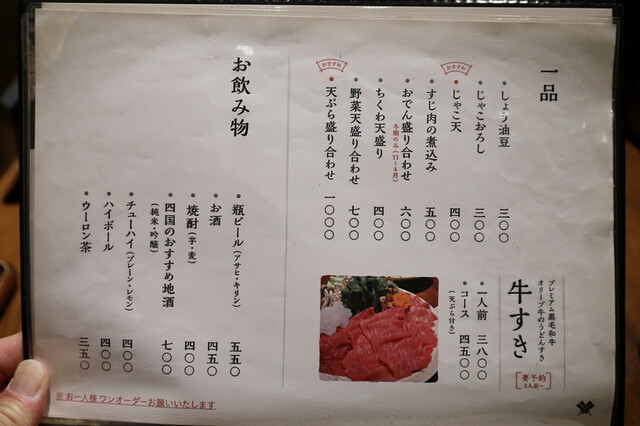 一品
しょう油豆 三〇〇
じゃこおろし 三〇〇
おすすめ
じゃこ天 四〇〇
すじ肉の煮込み 五〇〇
おでん盛り合わせ 六〇〇
冬期のみ(11〜4月)
ちくわ天盛り 四〇〇
野菜天盛り合わせ 七〇〇
おすすめ
天ぷら盛り合わせ 一〇〇〇
プレミアム黒毛和牛
オリーブ牛のうどんすき
牛すき
要予約
2人前〜
一人前 三八〇〇
コース 四五〇〇
(天ぷら付き)
お飲み物
瓶ビール(アサヒ・キリン) 五五〇
お酒 四五〇
焼酎(芋・麦) 四〇〇
四国のおすすめ地酒 七〇〇
(純米・吟醸)
チューハイ(プレーン・レモン) 四〇〇
ハイボール 四〇〇
ウーロン茶 三五〇
※お一人様 ワンオーダーお願いいたします